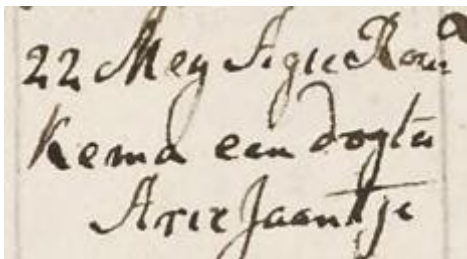 22 Mey Sigu Rou
Kema een dogter
Arie Jaantje